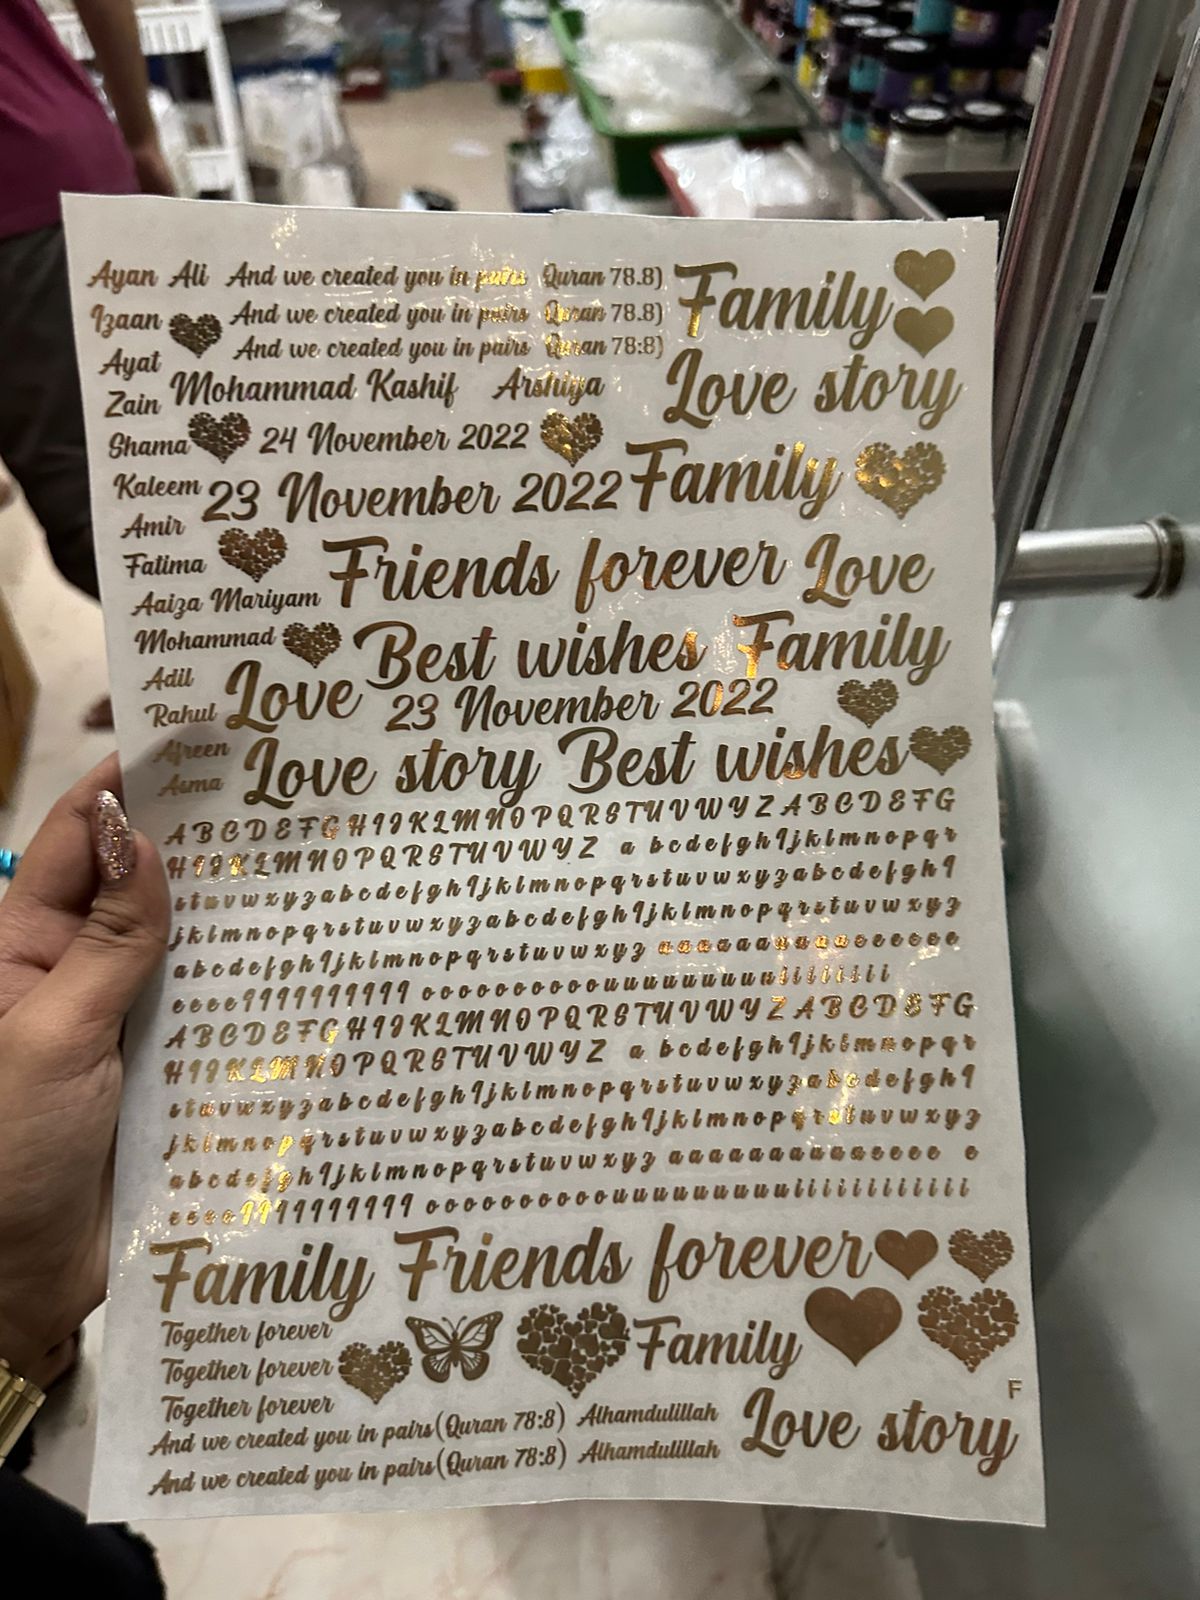 Ayan Ali And we created you in pairs Quran 78.8) Family
Izaan And we created you in pairs Quran 78.8)
Ayat And we created you in pairs Quran 78:8)
Zain Mohammad Kashif Arshiya Love story
Shama 24 November 2022
Kaleem 23 November 2022 Family
Amir
Fatima Friends forever Love
Aaiza Mariyam
Mohammad Best wishes Family
Adil Love 23 November 2022
Rahul
Afreen Love story Best wishes
Asma
A B C D E F G H I J K L M N O P Q R S T U V W Y Z A B C D E F G
H I J K L M N O P Q R S T U V W Y Z a b c d e f g h I j k l m n o p q r
s t u v w x y z a b c d e f g h I j k l m n o p q r s t u v w x y z a b c d e f g h I
j k l m n o p q r s t u v w x y z a b c d e f g h I j k l m n o p q r s t u v w x y z
a b c d e f g h I j k l m n o p q r s t u v w x y z a a a a a a a a a a e e e e e e
e e e e I I I I I I I I I I o o o o o o o o o o u u u u u u u u u u i i i i i i i i
A B C D E F G H I J K L M N O P Q R S T U V W Y Z A B C D E F G
H I J K L M N O P Q R S T U V W Y Z a b c d e f g h I j k l m n o p q r
s t u v w x y z a b c d e f g h I j k l m n o p q r s t u v w x y z a b c d e f g h I
j k l m n o p q r s t u v w x y z a b c d e f g h I j k l m n o p q r s t u v w x y z
a b c d e f g h I j k l m n o p q r s t u v w x y z a a a a a a a a a a e e e e e
e e e e I I I I I I I I I I o o o o o o o o o o u u u u u u u u u u i i i i i i i i i i i i
Family Friends forever
Together forever
Together forever Family
Together forever F
And we created you in pairs(Quran 78:8) Alhamdulillah Love story
And we created you in pairs(Quran 78:8) Alhamdulillah